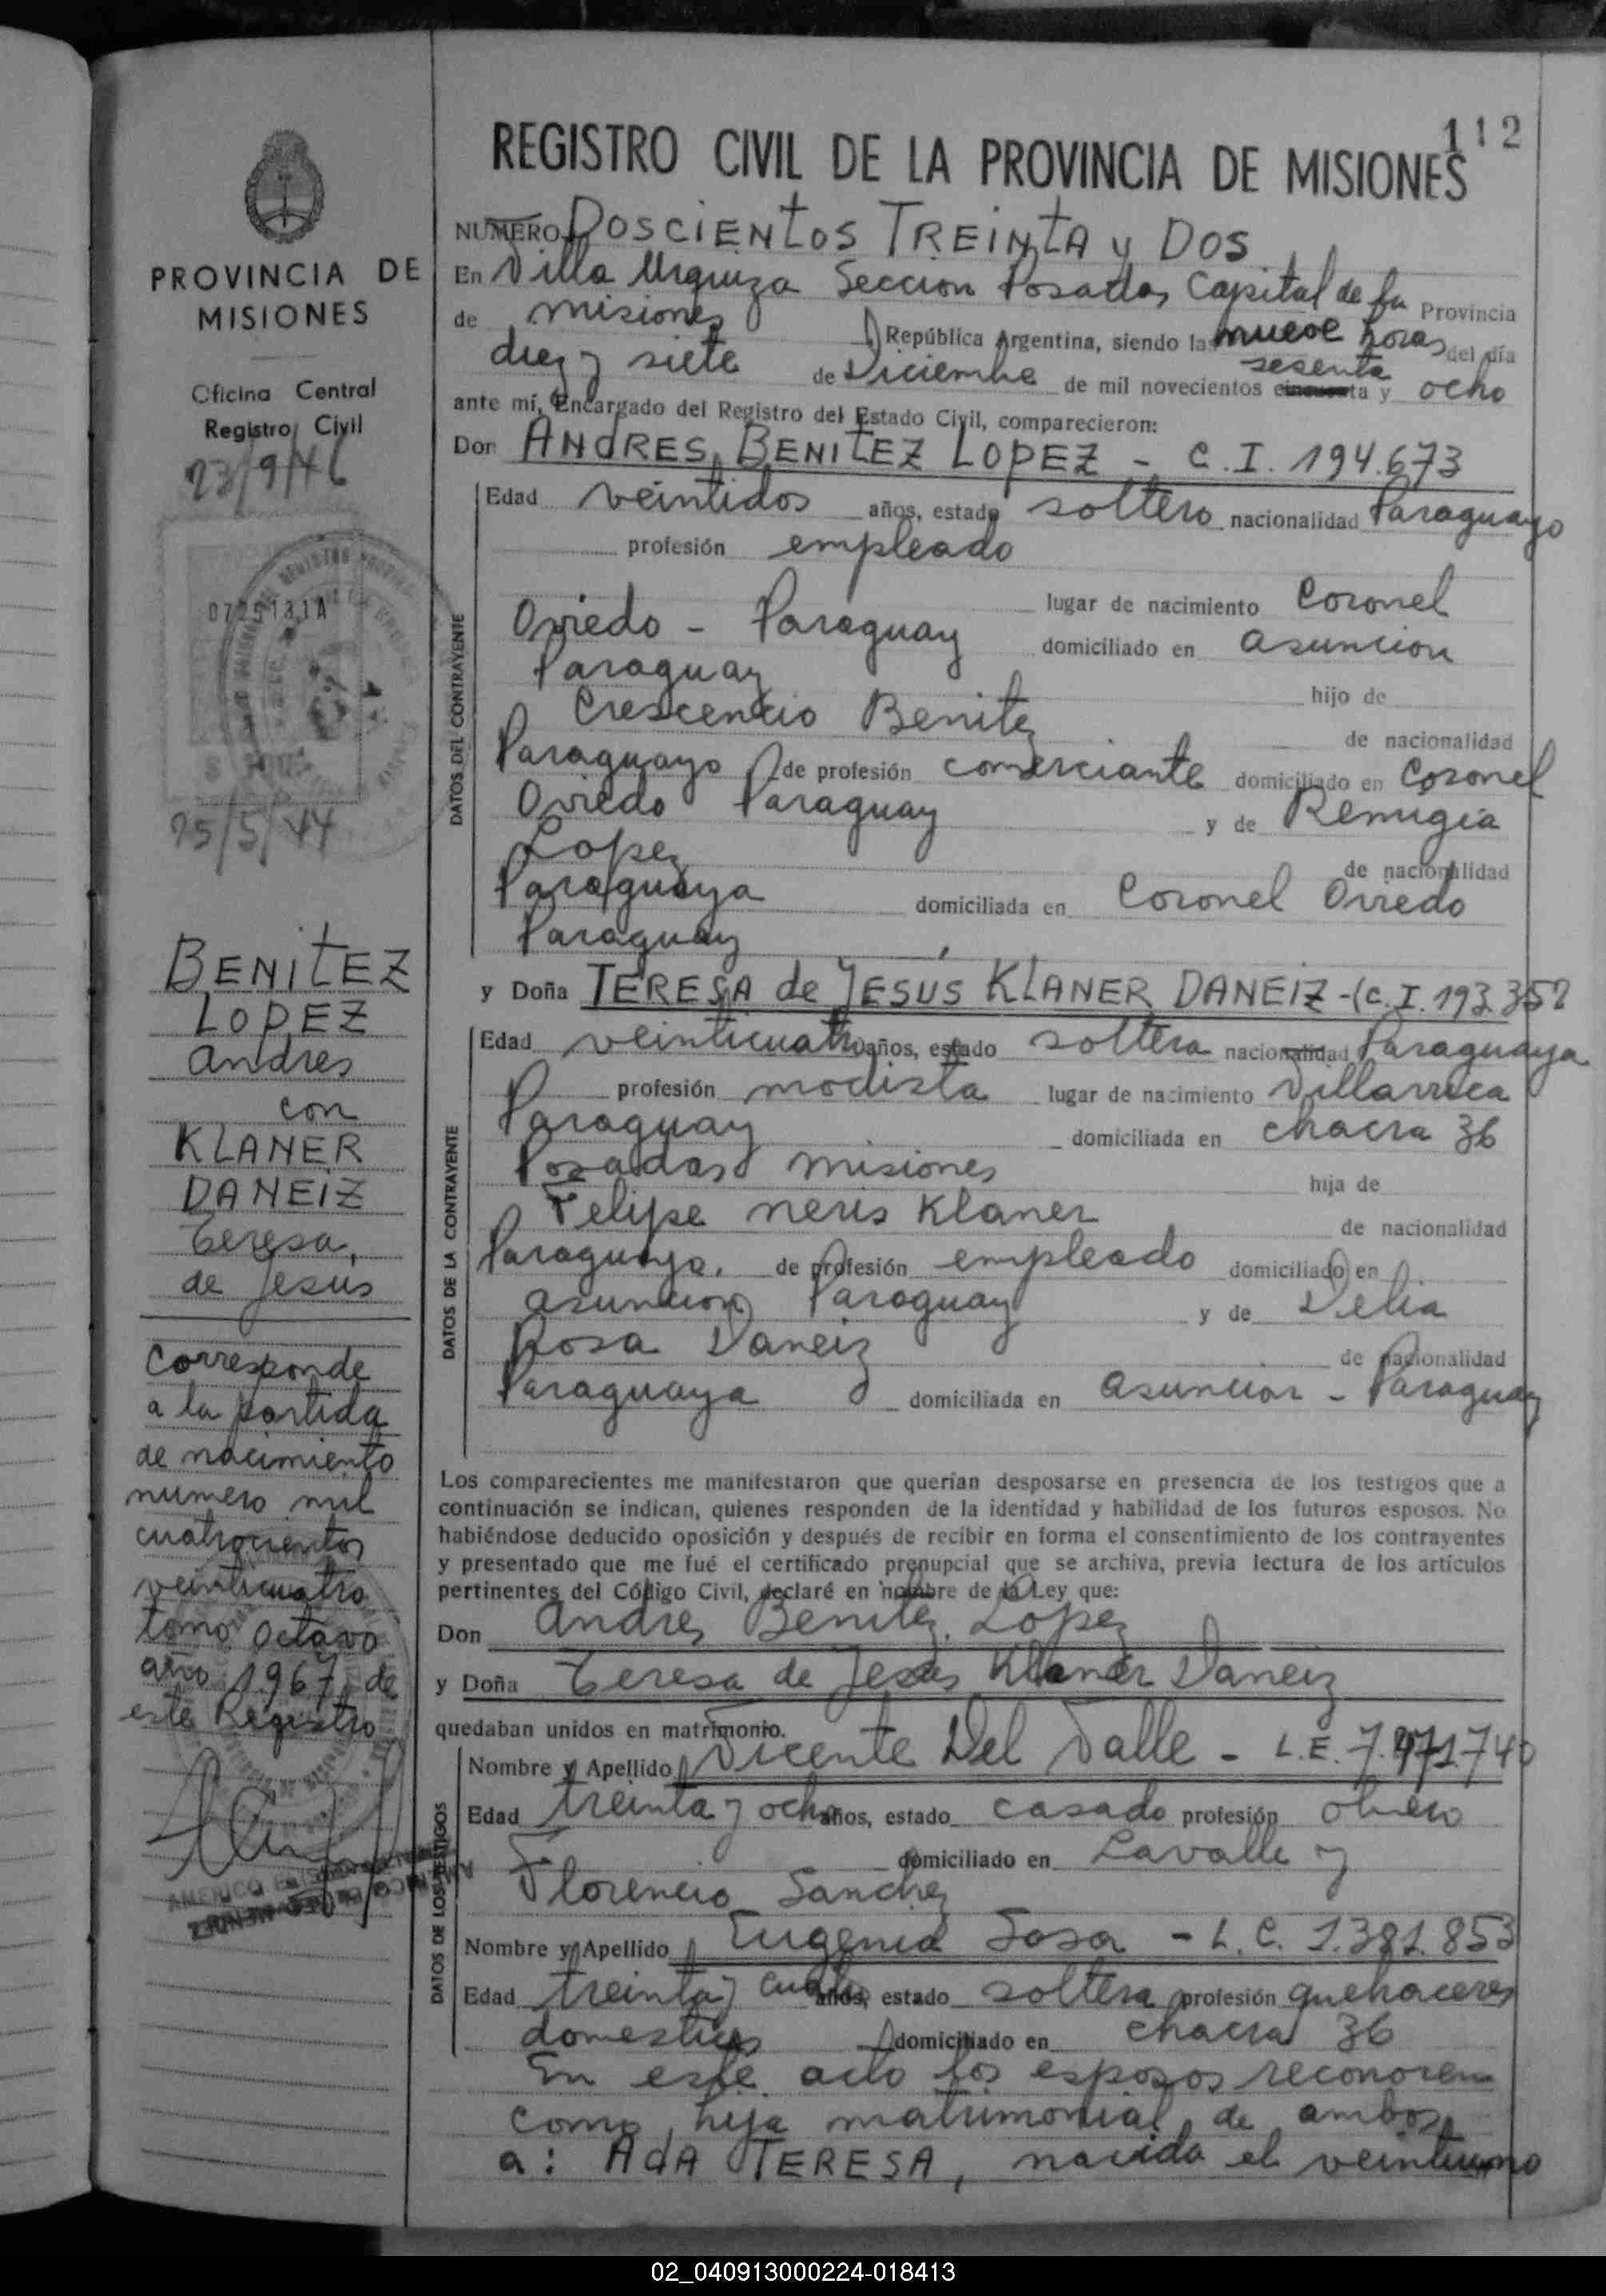 112
REGISTRO CIVIL DE LA PROVINCIA DE MISIONES
NUMERO DOSCIENTOS TREINTA y DOS
En Villa Urquiza Seccion Posadas Capital de la Provincia
de misiones República Argentina, siendo las nueve horas del día
diez y siete de Diciembre de mil novecientos sesenta y ocho
ante mí, Encargado del Registro del Estado Civil, comparecieron:
Don ANDRES BENITEZ LOPEZ - C.I. 194.673
DATOS DEL CONTRAYENTE
Edad veintidos años, estado soltero nacionalidad Paraguayo
profesión empleado
lugar de nacimiento Coronel
Oviedo - Paraguay domiciliado en asuncion
Paraguay hijo de
Crescencio Benitez de nacionalidad
Paraguayo de profesión comerciante domiciliado en Coronel
Oviedo Paraguay y de Remigia
Lopez de nacionalidad
Paraguaya domiciliada en Coronel Oviedo
Paraguay
y Doña TERESA de JESÚS KLANER DANEIZ -(C.I. 193.357
DATOS DE LA CONTRAYENTE
Edad veinticuatro años, estado soltera nacionalidad Paraguaya
profesión modista lugar de nacimiento Villarrica
Paraguay domiciliada en chacra 36
Posadas misiones hija de
Felipe neris Klaner de nacionalidad
Paraguayo. de profesión empleado domiciliado en
asuncion Paraguay y de Delia
Rosa Daneiz de nacionalidad
Paraguaya domiciliada en asuncion - Paraguay
Los comparecientes me manifestaron que querían desposarse en presencia de los testigos que a
continuación se indican, quienes responden de la identidad y habilidad de los futuros esposos. No
habiéndose deducido oposición y después de recibir en forma el consentimiento de los contrayentes
y presentado que me fué el certificado prenupcial que se archiva, previa lectura de los artículos
pertinentes del Código Civil, declaré en nombre de la Ley que:
Don Andres Benitez Lopez
y Doña Teresa de Jesus Klaner Daneiz
quedaban unidos en matrimonio.
DATOS DE LOS TESTIGOS
Nombre y Apellido Vicente Del Valle - L.E. 7.471.740
Edad treinta y ocho años, estado casado profesión obrero
domiciliado en Lavalle y
Florencio Sanchez
Nombre y Apellido Eugenia Sosa - L.C. 1.381.853
Edad treinta y cuatro años, estado soltera profesión quehaceres
domesticos domiciliado en chacra 36
En este acto los esposos reconocen
como hija matrimonial de ambos
a: AdA TERESA, nacida el veintiuno
PROVINCIA DE
MISIONES
Oficina Central
Registro Civil
23/9/46
0725131A
25/5/44
BENITEZ
LOPEZ
Andres
con
KLANER
DANEIZ
Teresa,
de Jesus
Corresponde
a la partida
de nacimiento
numero mil
cuatrocientos
veinticuatro
tomo octavo
año 1967 de
este Registro
AMERICO
02_040913000224-018413